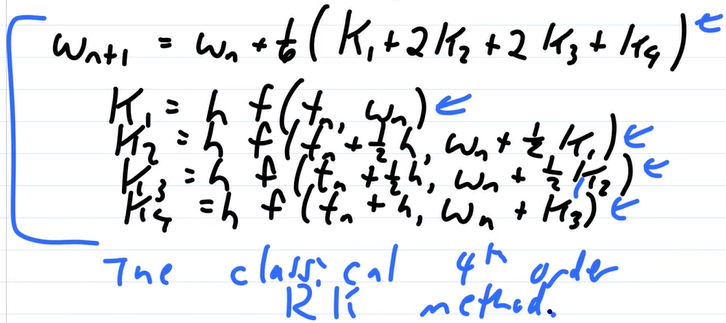 w_{n+1} = w_n + 1/6 ( K_1 + 2K_2 + 2K_3 + K_4 )
K_1 = h f(t_n, w_n)
K_2 = h f(t_n + 1/2 h, w_n + 1/2 K_1)
K_3 = h f(t_n + 1/2 h, w_n + 1/2 K_2)
K_4 = h f(t_n + h, w_n + K_3)
The classical 4th order
RK method.